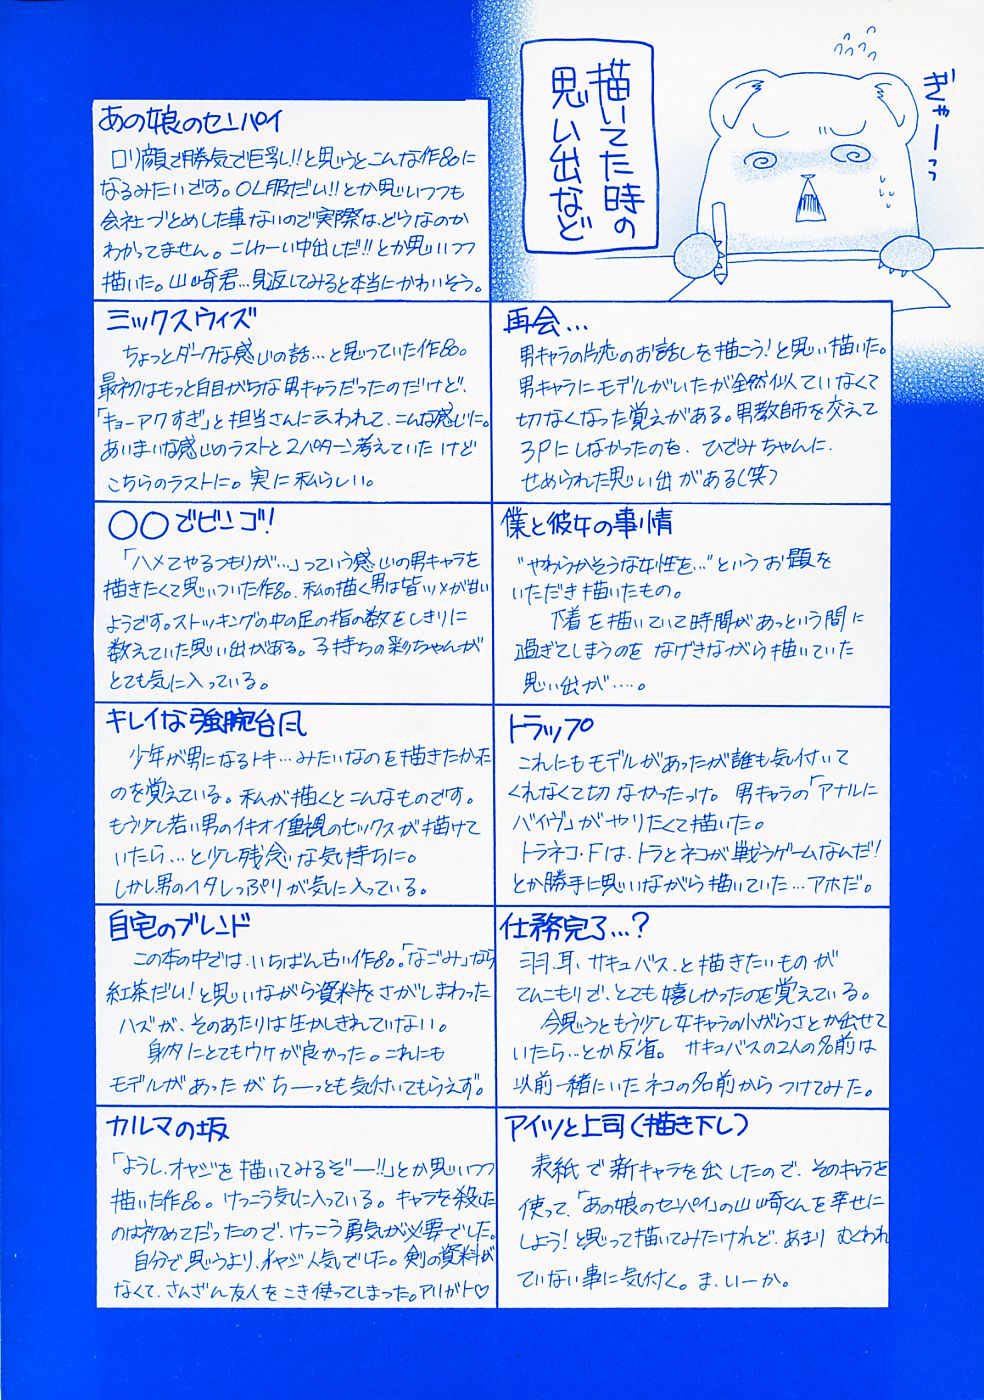 描いてた時の
思い出など
ぎゃーっっ
あの娘のセンパイ
ロリ顔で勝気で巨乳!!と思うとこんな作品に
なるみたいです。OL服だい!!とか思いつつも
会社づとめした事ないので実際は、どうなのか
わかってません。中出しだ!!とか思いつつ
描いた。山崎君…見返してみると本当にかわいそう。
ミックスウィズ
ちょっとダークな感じの話…と思っていた作品。
最初はもっと自目がちな男キャラだったのだけど、
「キョーアクすぎ」と担当さんに云われて、こんな感じに。
あいまいな感じのラストと2パターン考えていたけど
こちらのラストに。実に私らしい。
再会…
男キャラの片恋のお話しを描こう!と思い描いた。
男キャラにモデルがいたが全然似ていなくて
切なくなった覚えがある。男教師を交えて
3Pにしなかったのを、ひでみちゃんに、
せめられた思い出がある(笑)
○○でビンゴ!
「ハメてやるつもりが…」っていう感じの男キャラを
描きたくて思いついた作品。私の描く男は皆ツメが甘い
ようです。ストッキングの中の足の指の数をしきりに
数えていた思い出がある。子持ちの彩ちゃんが
とても気に入っている。
僕と彼女の事情
"やわらかそうな女性を…"というお題を
いただき描いたもの。
下着を描いていて時間があっという間に
過ぎてしまうのをなげきながら描いていた
思い出が…。
キレイな強腕台風
少年が男になるトキ…みたいなのを描きたかった
のを覚えている。私が描くとこんなものです。
もう少し若い男のイキオイ重視のセックスが描けて
いたら…と少し残念な気持ちに。
しかし男のヘタレっぷりが気に入っている。
トラップ
これにもモデルがあったが誰も気付いて
くれなくて切なかったっけ。男キャラの「アナルに
バイヴ」がやりたくて描いた。
トラネコ・Fは、トラとネコが戦うゲームなんだ!
とか勝手に思いながら描いていた…アホだ。
自宅のブレンド
この本の中では、いちばん古い作品。「なごみ」なら
紅茶だい!と思いながら資料をさがしまわった
ハズが、そのあたりは生かしきれていない。
身内にとてもウケが良かった。これにも
モデルがあったがちーっとも気付いてもらえず。
任務完了…?
羽、耳、サキュバス、と描きたいものが
てんこもりで、とても嬉しかったのを覚えている。
今思うともう少し女キャラの小がらさとか出せて
いたら…とか反省。サキュバスの2人の名前は
以前一緒にいたネコの名前からつけてみた。
カルマの坂
「ようし、オヤジを描いてみるぞー!!」とか思いつつ
描いた作品。けっこう気に入っている。キャラを殺した
のは初めてだったので、けっこう勇気が必要でした。
自分で思うより、オヤジ人気でした。剣の資料が
なくて、さんざん友人をこき使ってしまった。アリガト♡
アイツと上司(描き下し)
表紙で新キャラを出したので、そのキャラを
使って、「あの娘のセンパイ」の山崎くんを幸せに
しよう!と思って描いてみたけれど、あまりむくわれ
ていない事に気付く。ま、いーか。